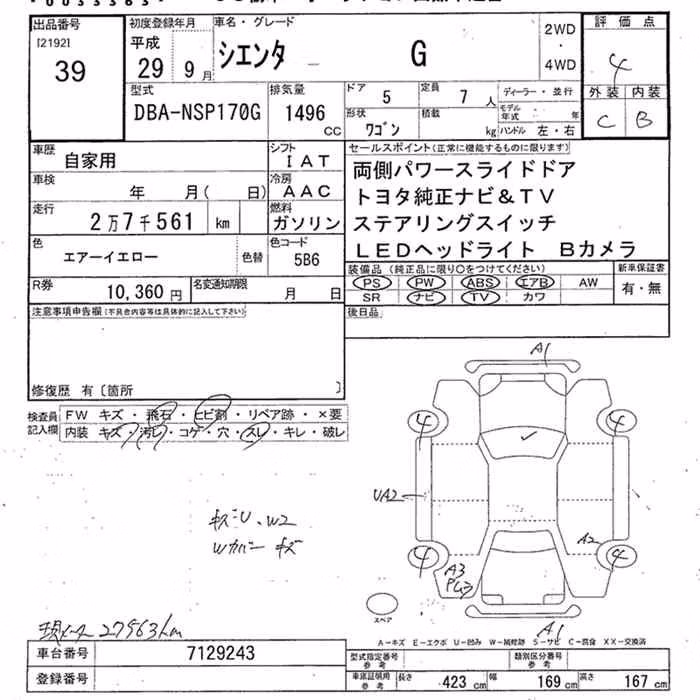 出品番号
[2192]
39
初度登録年月
平成
29 9月
車名・グレード
シエンタ G
2WD
・
4WD
評価点
4
外装 内装
C B
型式
DBA-NSP170G
排気量
1496
CC
ドア 5
定員 7 人
形状
ワゴン
積載
kg
ディーラー・並行
モデル年式 年
ハンドル 左・右
車歴 自家用
シフト
IAT
車検 年 月( 日)
冷房
AAC
走行
2万7千561 km
燃料
ガソリン
色
エアーイエロー
色替
色コード
5B6
R券
10,360 円
名変通知期限
月 日
セールスポイント(正常に機能するものに限ります)
両側パワースライドドア
トヨタ純正ナビ&TV
ステアリングスイッチ
LEDヘッドライト Bカメラ
装備品(純正品に限り○をつけてください)
新車保証書
PS PW ABS エアB AW
SR ナビ TV カワ
有・無
注意事項申告欄(不具合内容等は具体的に記入して下さい)
後日品
修復歴 有〔箇所 〕
検査員記入欄
FW キズ・飛石・ヒビ割・リペア跡・×要
内装 キズ・汚レ・コゲ・穴・スレ・キレ・破レ
A1
4 4
UA2
A2
4 4
A3
A1
スペア
キズU、W2
Wカバー キズ
現メーター 27563km
A-キズ E-エクボ U-凹み W-補修跡 S-サビ C-腐食 XX-交換済
車台番号 7129243
登録番号
型式指定番号
参考
類別区分番号
参考
車庫証明用
参考
長さ 423 cm 幅 169 cm 高さ 167 cm